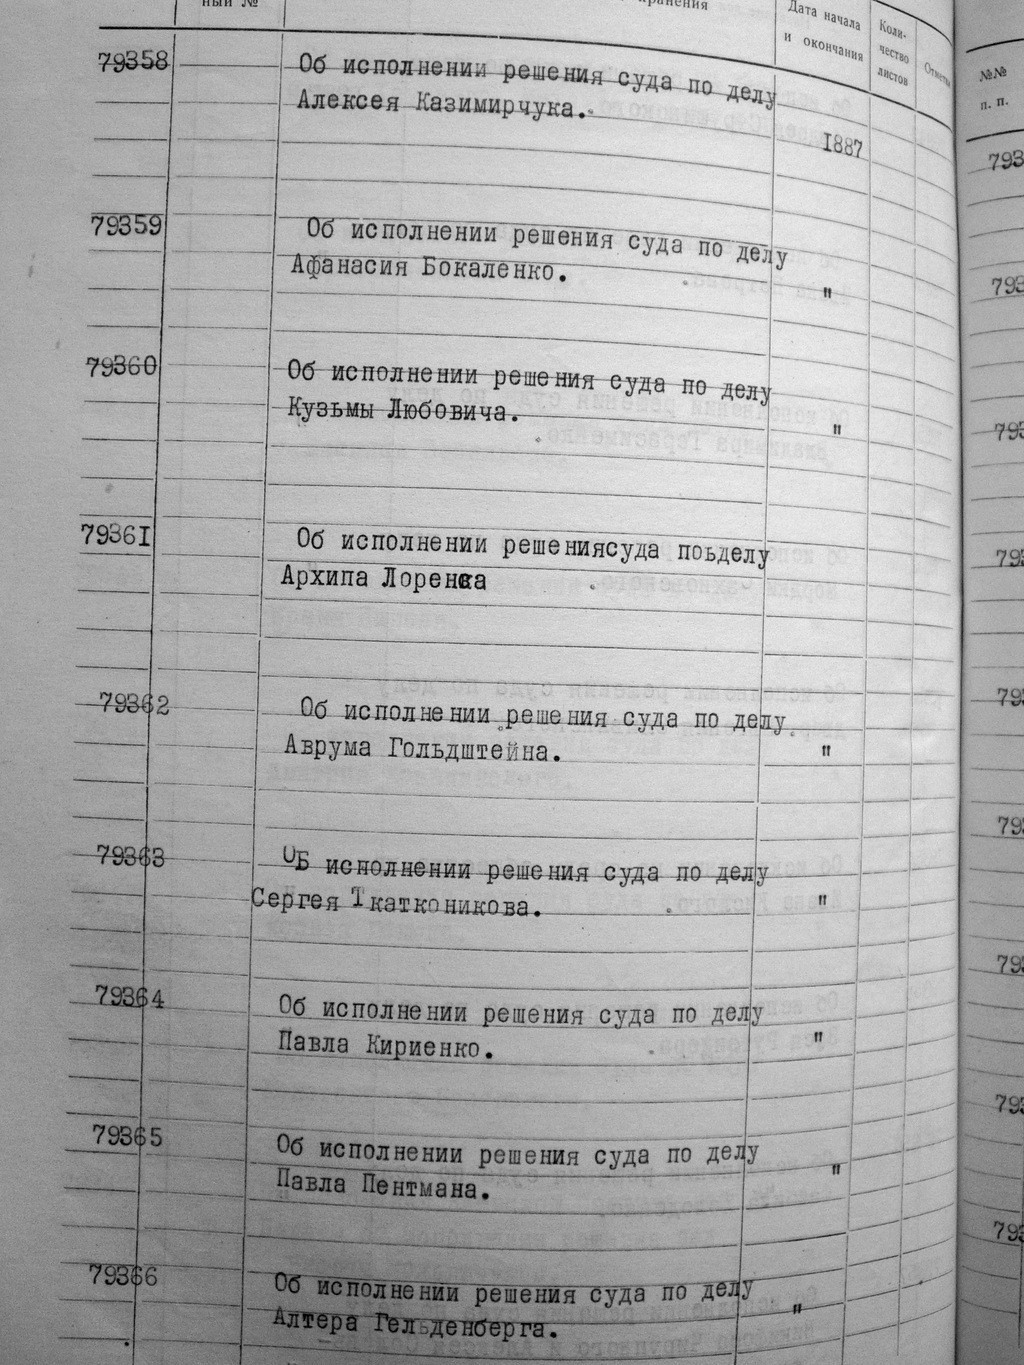 ный №
Дата начала
и окончания
Коли-
чество
листов
79358 Об исполнении решения суда по делу
Алексея Казимирчука.
1887
79359 Об исполнении решения суда по делу
Афанасия Бокаленко. "
79360 Об исполнении решения суда по делу
Кузьмы Любовича. "
79361 Об исполнении решениясуда поьделу
Архипа Лоренса
79362 Об исполнении решения суда по делу.
Аврума Гольдштейна. "
79363 ОБ исполнении решения суда по делу
Сергея Ткатконикова. "
79364 Об исполнении решения суда по делу
Павла Кириенко. "
79365 Об исполнении решения суда по делу
Павла Пентмана. "
79366 Об исполнении решения суда по делу
Алтера Гельденберга. "
№№
п. п.